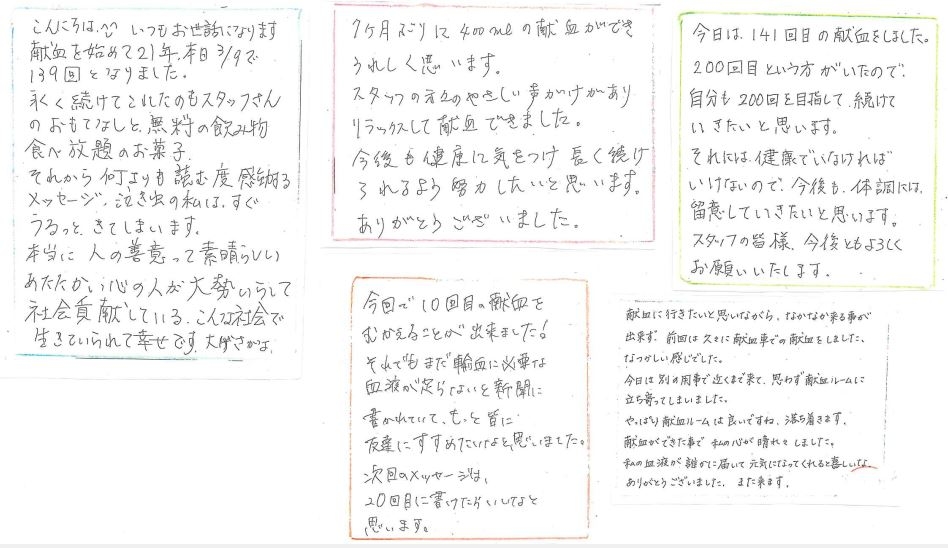 こんにちは^^ いつもお世話になります
献血を始めて21年、本日3/9で
139回となりました。
永く続けてこれたのもスタッフさん
のおもてなしと、無料の飲み物
食べ放題のお菓子
それから何よりも読む度感銘る
メッセージ、泣き虫の私は、すぐ
うるっときてしまいます。
本当に人の善意って素晴らしい
あたたかい心の人が大勢いらして
社会貢献している、こんな社会で
生きていられて幸せです。大げさかな、
7ヶ月ぶりに400mlの献血ができ
うれしく思います。
スタッフの方々のやさしい声がけがあり
リラックスして献血できました。
今後も健康に気をつけ長く続け
られるよう努力したいと思います。
ありがとうございました。
今日は、141回目の献血をしました。
200回目という方がいたので、
自分も200回を目指して、続けて
いきたいと思います。
それには、健康でいなければ
いけないので、今後も、体調には、
留意していきたいと思います。
スタッフの皆様、今後ともよろしく
お願いいたします.
今回で10回目の献血を
むかえることが出来ました!
それでもまだ輸血に必要な
血液が足らないと新聞に
書かれていて、もっと皆に
友達にすすめたいなと思いました。
次回のメッセージは、
20回目に書けたらいいなと
思います。
献血に行きたいと思いながら、なかなか来る事が
出来ず、前回は久々に献血車での献血をしました、
なつかしい感じでした。
今日は別の用事で近くまで来て、思わず献血ルームに
立ち寄ってしまいました。
やっぱり献血ルームは良いですね、落ち着きます。
献血ができた事で私の心が晴れ々しました。
私の血液が誰かに届いて元気になってくれると喜しいな。
ありがとうございました。また来ます.